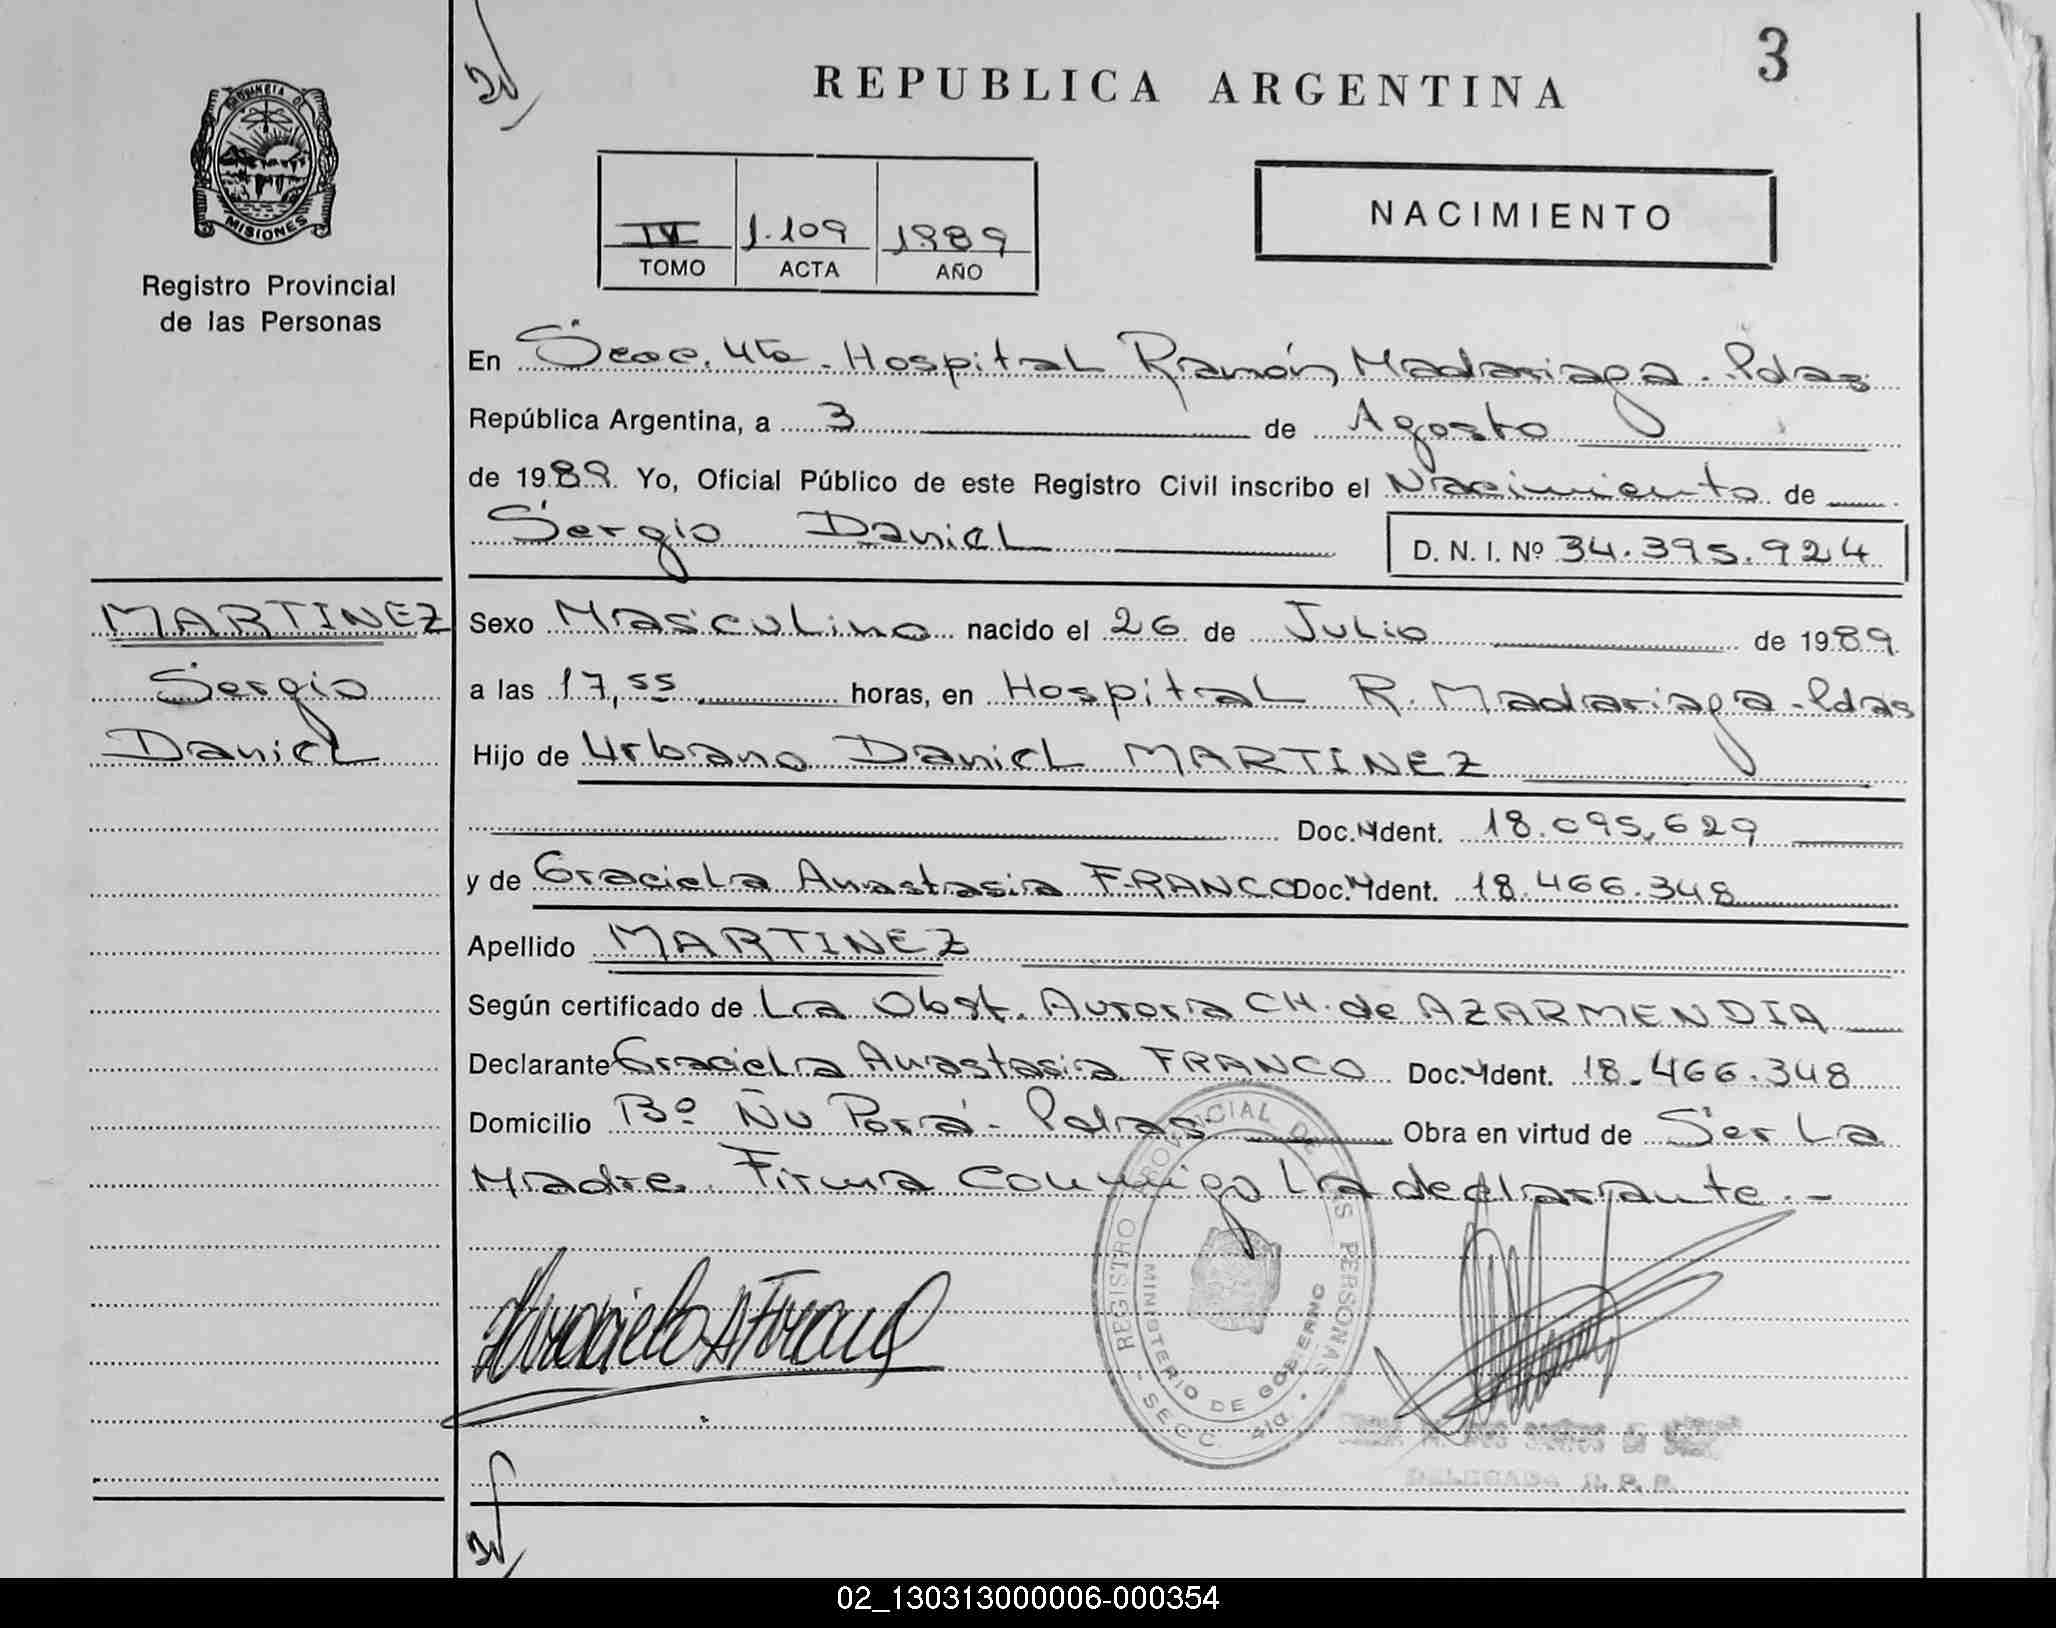 3
REPUBLICA ARGENTINA
PROVINCIA DE
MISIONES
Registro Provincial
de las Personas
IV 1.109 1989
TOMO ACTA AÑO
NACIMIENTO
En Secc. 4ta. Hospital Ramón Madariaga - Pdas
República Argentina, a 3 de Agosto
de 1989. Yo, Oficial Público de este Registro Civil inscribo el Nacimiento de
Sergio Daniel
D. N. I. Nº 34.395.924
MARTINEZ
Sergio
Daniel
Sexo Masculino nacido el 26 de Julio de 1989
a las 17,55 horas, en Hospital R. Madariaga - Pdas
Hijo de Urbano Daniel MARTINEZ
Doc. Ident. 18.095.629
y de Graciela Anastasia FRANCO Doc. Ident. 18.466.348
Apellido MARTINEZ
Según certificado de La Obst. Aurora CH. de AZARMENDIA
Declarante Graciela Anastasia FRANCO Doc. Ident. 18.466.348
Domicilio Bº Ñu Porá - Pdas Obra en virtud de Ser La
Madre. Firma Conmigo La declarante. -
REGISTRO PROVINCIAL DE LAS PERSONAS
MINISTERIO DE GOBIERNO
SECC. 4ta.
Graciela A Franco
DELEGADA R. P. P.
02_130313000006-000354